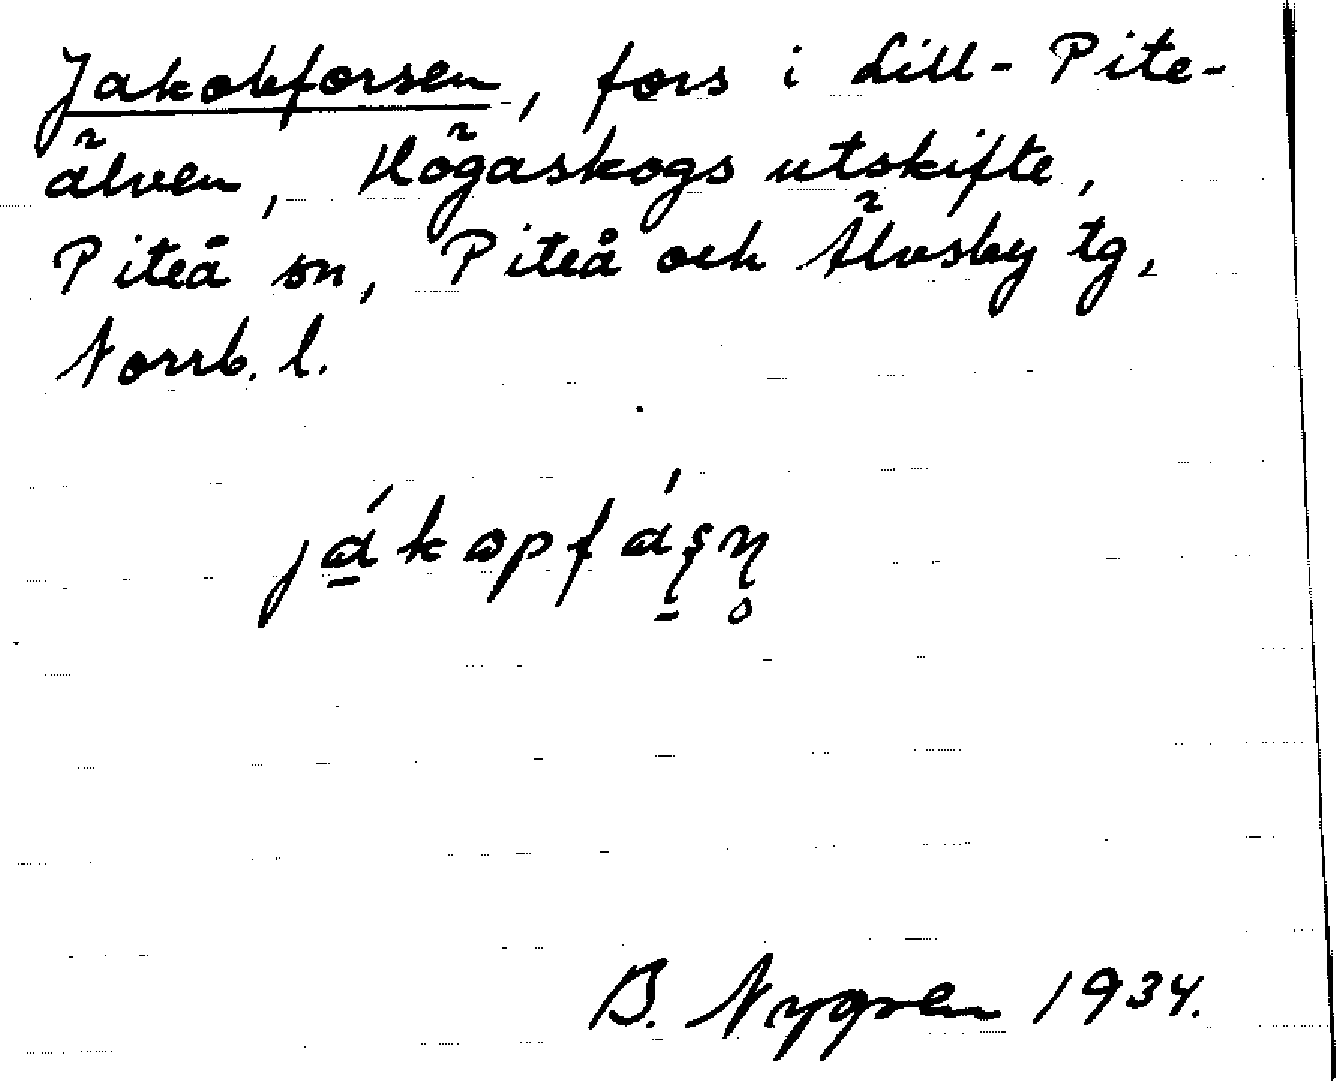 Jakobforsen, fors i Lill-Pite-
älven, Högåskogs utskifte,
Piteå sn, Piteå och Älvsby tg,
Norrb. l.
B. Nygren 1934.